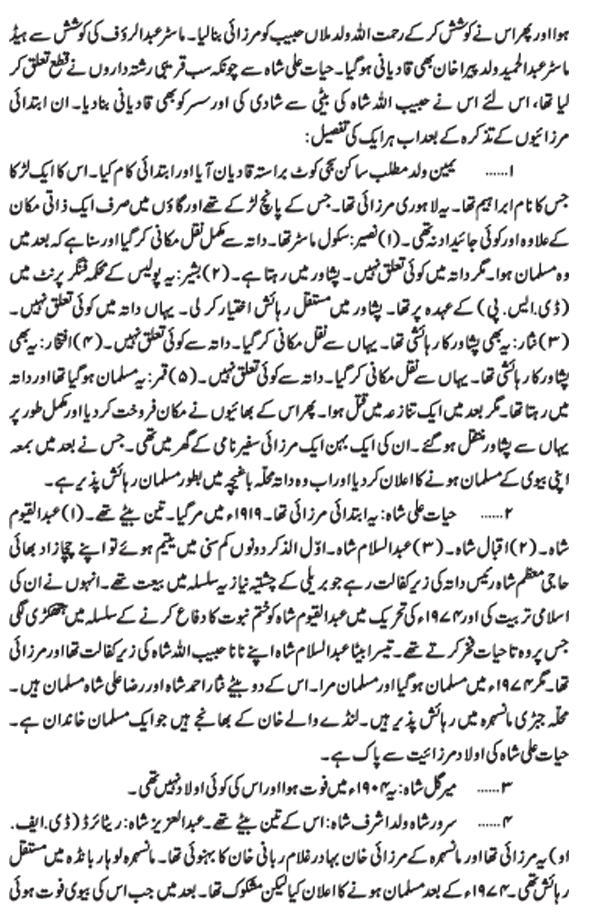 ہوا اور پھر اس نے کوشش کر کے رحمت اللہ ولد ملاں حبیب کو مرزائی بنالیا۔ ماسٹر عبدالرؤف کی کوشش سے ہیڈ
ماسٹر عبدالحمید ولد پیرا خان بھی قادیانی ہوگیا۔ حیات علی شاہ سے چونکہ سب قریبی رشتہ داروں نے قطع تعلق کر
لیا تھا، اس لئے اس نے حبیب اللہ شاہ کی بیٹی سے شادی کی اور سسر کو بھی قادیانی بنادیا۔ ان ابتدائی
مرزائیوں کے تذکرہ کے بعد اب ہر ایک کی تفصیل:
۱…… یمین ولد مطلب ساکن نجی کوٹ براستہ قادیان آیا اور ابتدائی کام کیا۔ اس کا ایک لڑکا
جس کا نام ابراہیم تھا۔ یہ لاہوری مرزائی تھا۔ جس کے پانچ لڑکے تھے اور گاؤں میں صرف ایک ذاتی مکان
کے علاوہ اور کوئی جائیداد نہ تھی۔ (۱) نصیر: سکول ماسٹر تھا۔ داتہ سے مکمل نقل مکانی کر گیا اور سنا ہے کہ بعد میں
وہ مسلمان ہوا۔ مگر داتہ میں کوئی تعلق نہیں۔ پشاور میں رہتا ہے۔ (۲) بشیر: یہ پولیس کے محکمہ فنگر پرنٹ میں
(ڈی.ایس.پی) کے عہدہ پر تھا۔ پشاور میں مستقل رہائش اختیار کر لی۔ یہاں داتہ میں کوئی تعلق نہیں۔
(۳) نثار: یہ بھی پشاور کا رہائشی تھا۔ یہاں سے نقل مکانی کر گیا۔ داتہ سے کوئی تعلق نہیں۔ (۴) افتخار: یہ بھی
پشاور کا رہائشی تھا۔ یہاں سے نقل مکانی کر گیا۔ داتہ سے کوئی تعلق نہیں۔ (۵) قمر: یہ مسلمان ہوگیا تھا اور داتہ
میں رہتا تھا۔ مگر بعد میں ایک تنازعہ میں قتل ہوا۔ پھر اس کے بھائیوں نے مکان فروخت کردیا اور مکمل طور پر
یہاں سے پشاور منتقل ہوگئے۔ ان کی ایک بہن ایک مرزائی سفیر نامی کے گھر میں تھی۔ جس نے بعد میں بمعہ
اپنی بیوی کے مسلمان ہونے کا اعلان کردیا اور اب وہ داتہ محلّہ باغیچہ میں بطور مسلمان رہائش پذیر ہے۔
۲…… حیات علی شاہ: یہ ابتدائی مرزائی تھا۔ ۱۹۱۹ء میں مر گیا۔ تین بیٹے تھے۔ (۱) عبدالقیوم
شاہ۔ (۲) اقبال شاہ۔ (۳) عبدالسلام شاہ۔ اوّل الذکر دونوں کم سنی میں یتیم ہوئے تو اپنے چچازاد بھائی
حاجی معظم شاہ رئیس داتہ کی زیر کفالت رہے جو بریلی کے چشتیہ نیازیہ سلسلہ میں بیعت تھے۔ انہوں نے ان کی
اسلامی تربیت کی اور ۱۹۷۴ء کی تحریک میں عبدالقیوم شاہ کو ختم نبوت کا دفاع کرنے کے سلسلہ میں ہتھکڑی لگی
جس پر وہ تا حیات فخر کرتے تھے۔ تیسرا بیٹا عبدالسلام شاہ اپنے نانا حبیب اللہ شاہ کی زیر کفالت تھا اور مرزائی
تھا۔ مگر ۱۹۷۴ء میں مسلمان ہوگیا اور مسلمان مرا۔ اس کے دو بیٹے نثار احمد شاہ اور رضا علی شاہ مسلمان ہیں۔
محلّہ جبڑی مانسہرہ میں رہائش پذیر ہیں۔ لنڈے والے خان کے بھانجے ہیں جو ایک مسلمان خاندان ہے۔
حیات علی شاہ کی اولاد مرزائیت سے پاک ہے۔
۳…… میر گل شاہ: یہ ۱۹۰۴ء میں فوت ہوا اور اس کی کوئی اولاد نہیں تھی۔
۴…… سرور شاہ ولد اشرف شاہ: اس کے تین بیٹے تھے۔ عبدالعزیز شاہ: ریٹائرڈ (ڈی.ایف.
او) یہ مرزائی تھا اور مانسہرہ کے مرزائی خان بہادر غلام ربانی خان کا بہنوئی تھا۔ مانسہرہ لوہار بانڈہ میں مستقل
رہائش تھی۔ ۱۹۷۴ء کے بعد مسلمان ہونے کا اعلان کیا لیکن مشکوک تھا۔ بعد میں جب اس کی بیوی فوت ہوئی